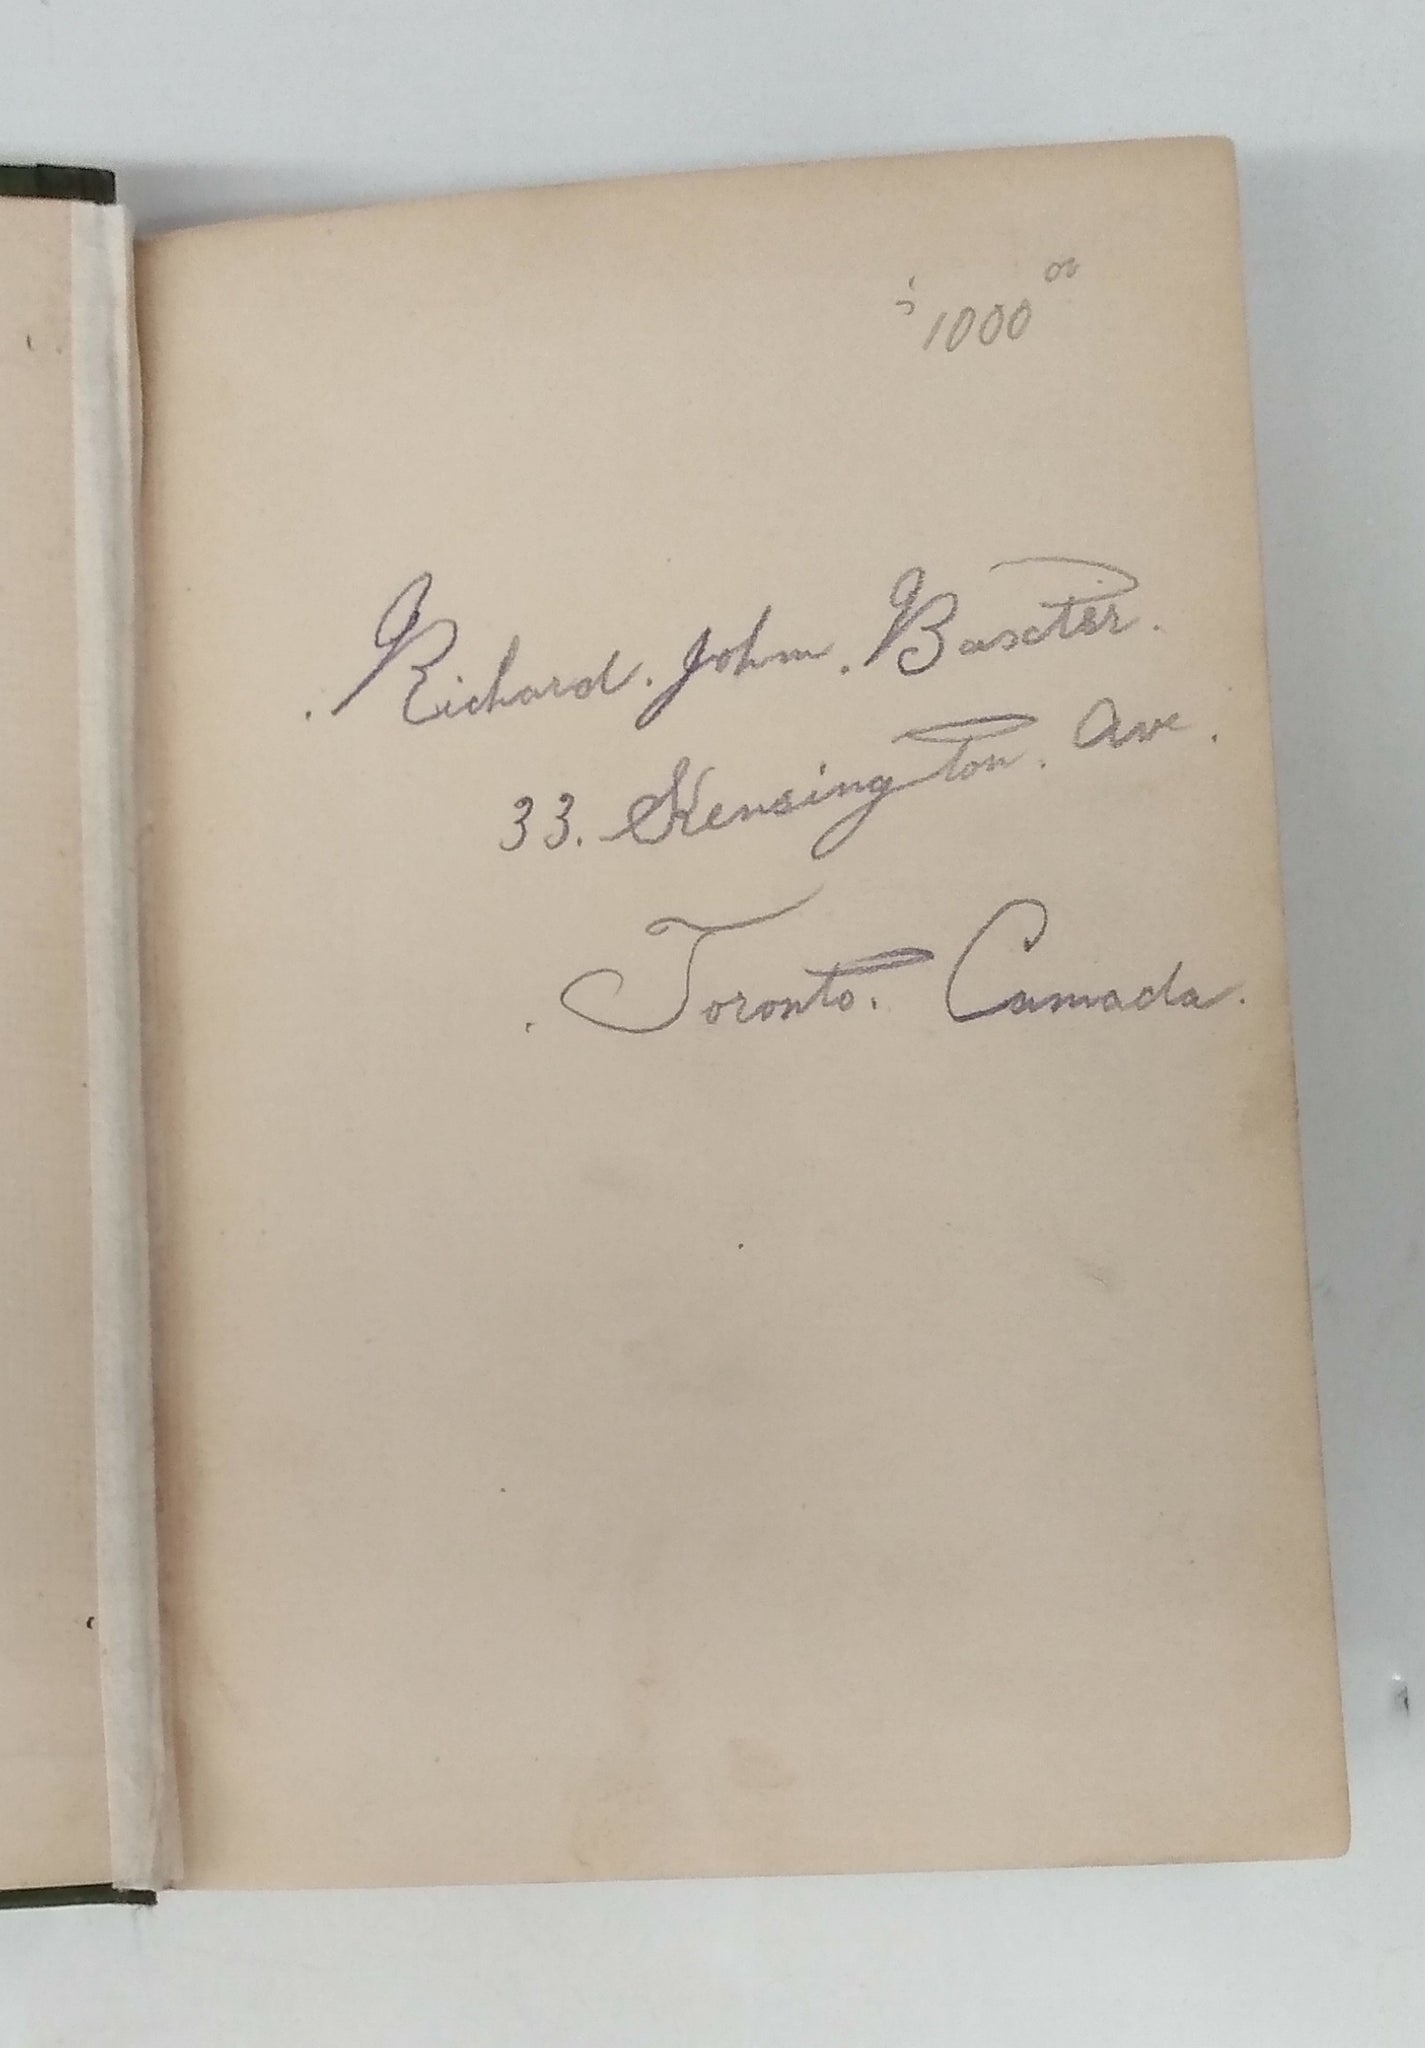 $1000 00
. Richard. John. Baxter.
33. Kensington. Ave.
. Toronto. Canada.